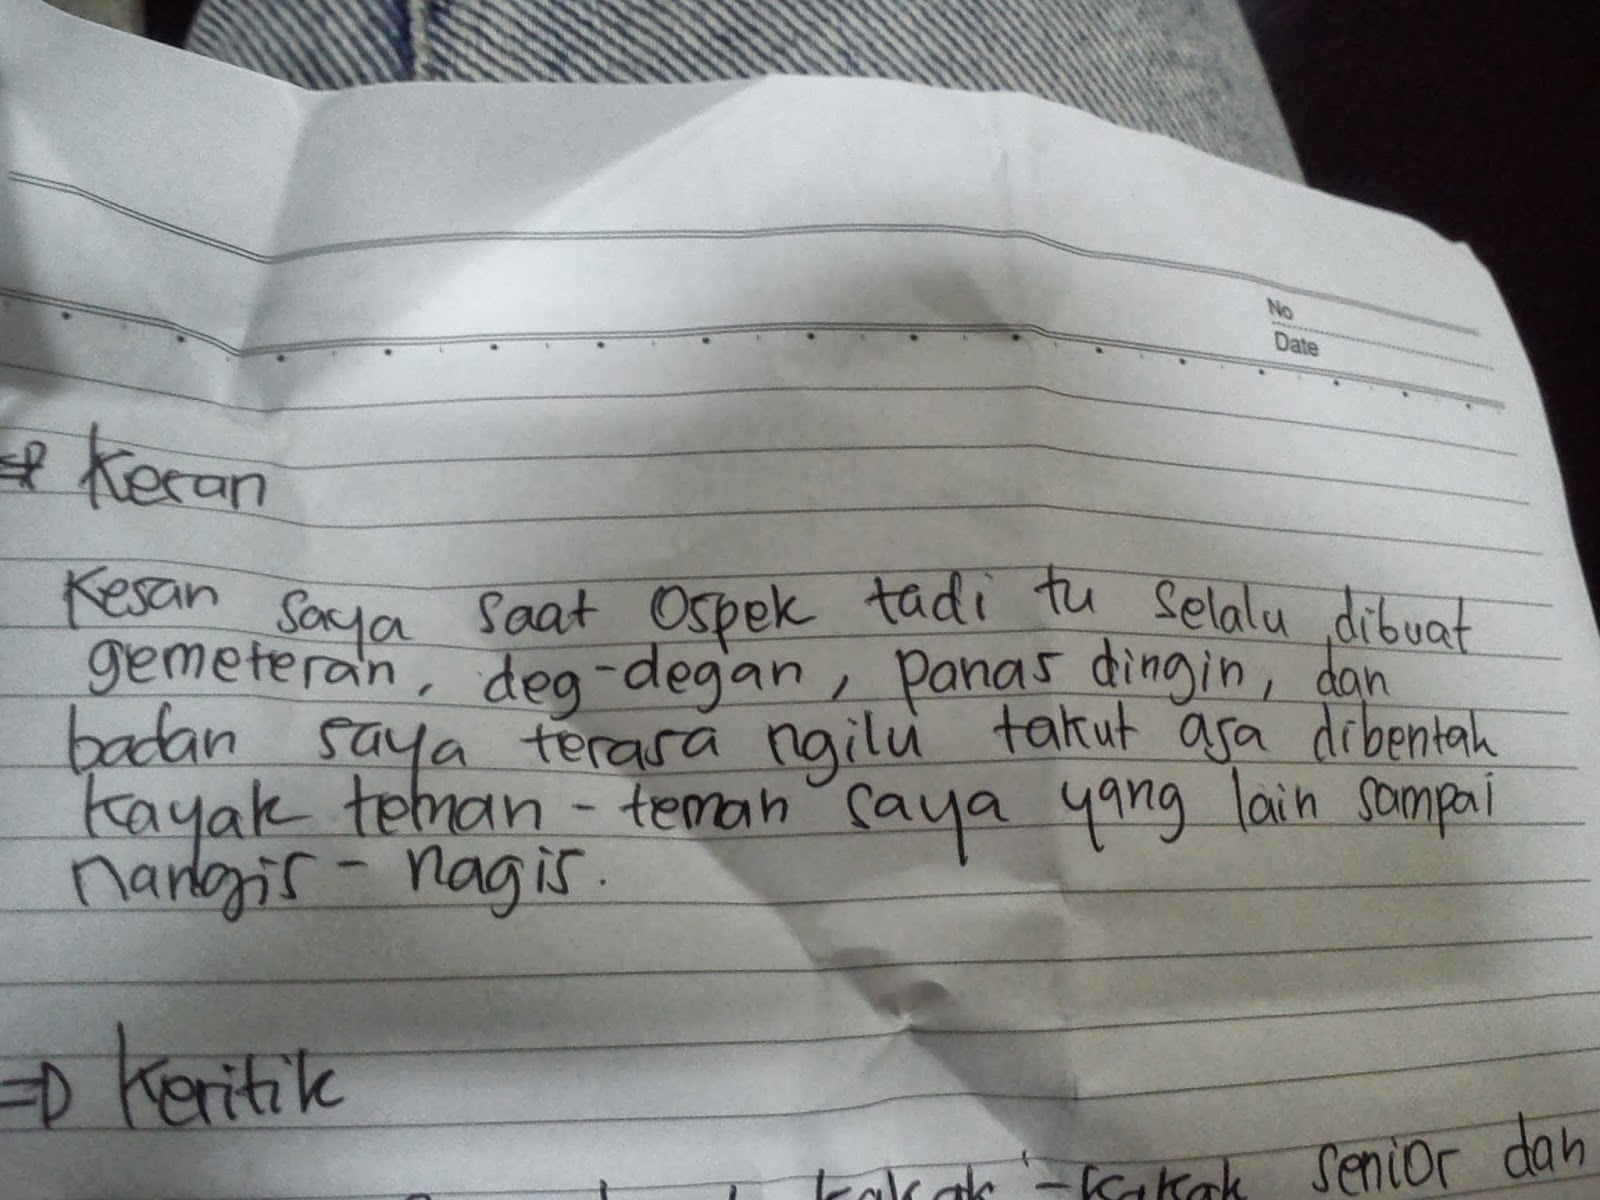 No
Date
=> Kesan
Kesan saya saat Ospek tadi tu selalu dibuat
gemeteran, deg-degan, panas dingin, dan
badan saya terasa ngilu takut asa dibentak
kayak teman-teman saya yang lain sampai
nangis-nagis.
=> Keritik
kakak-kakak senior dan